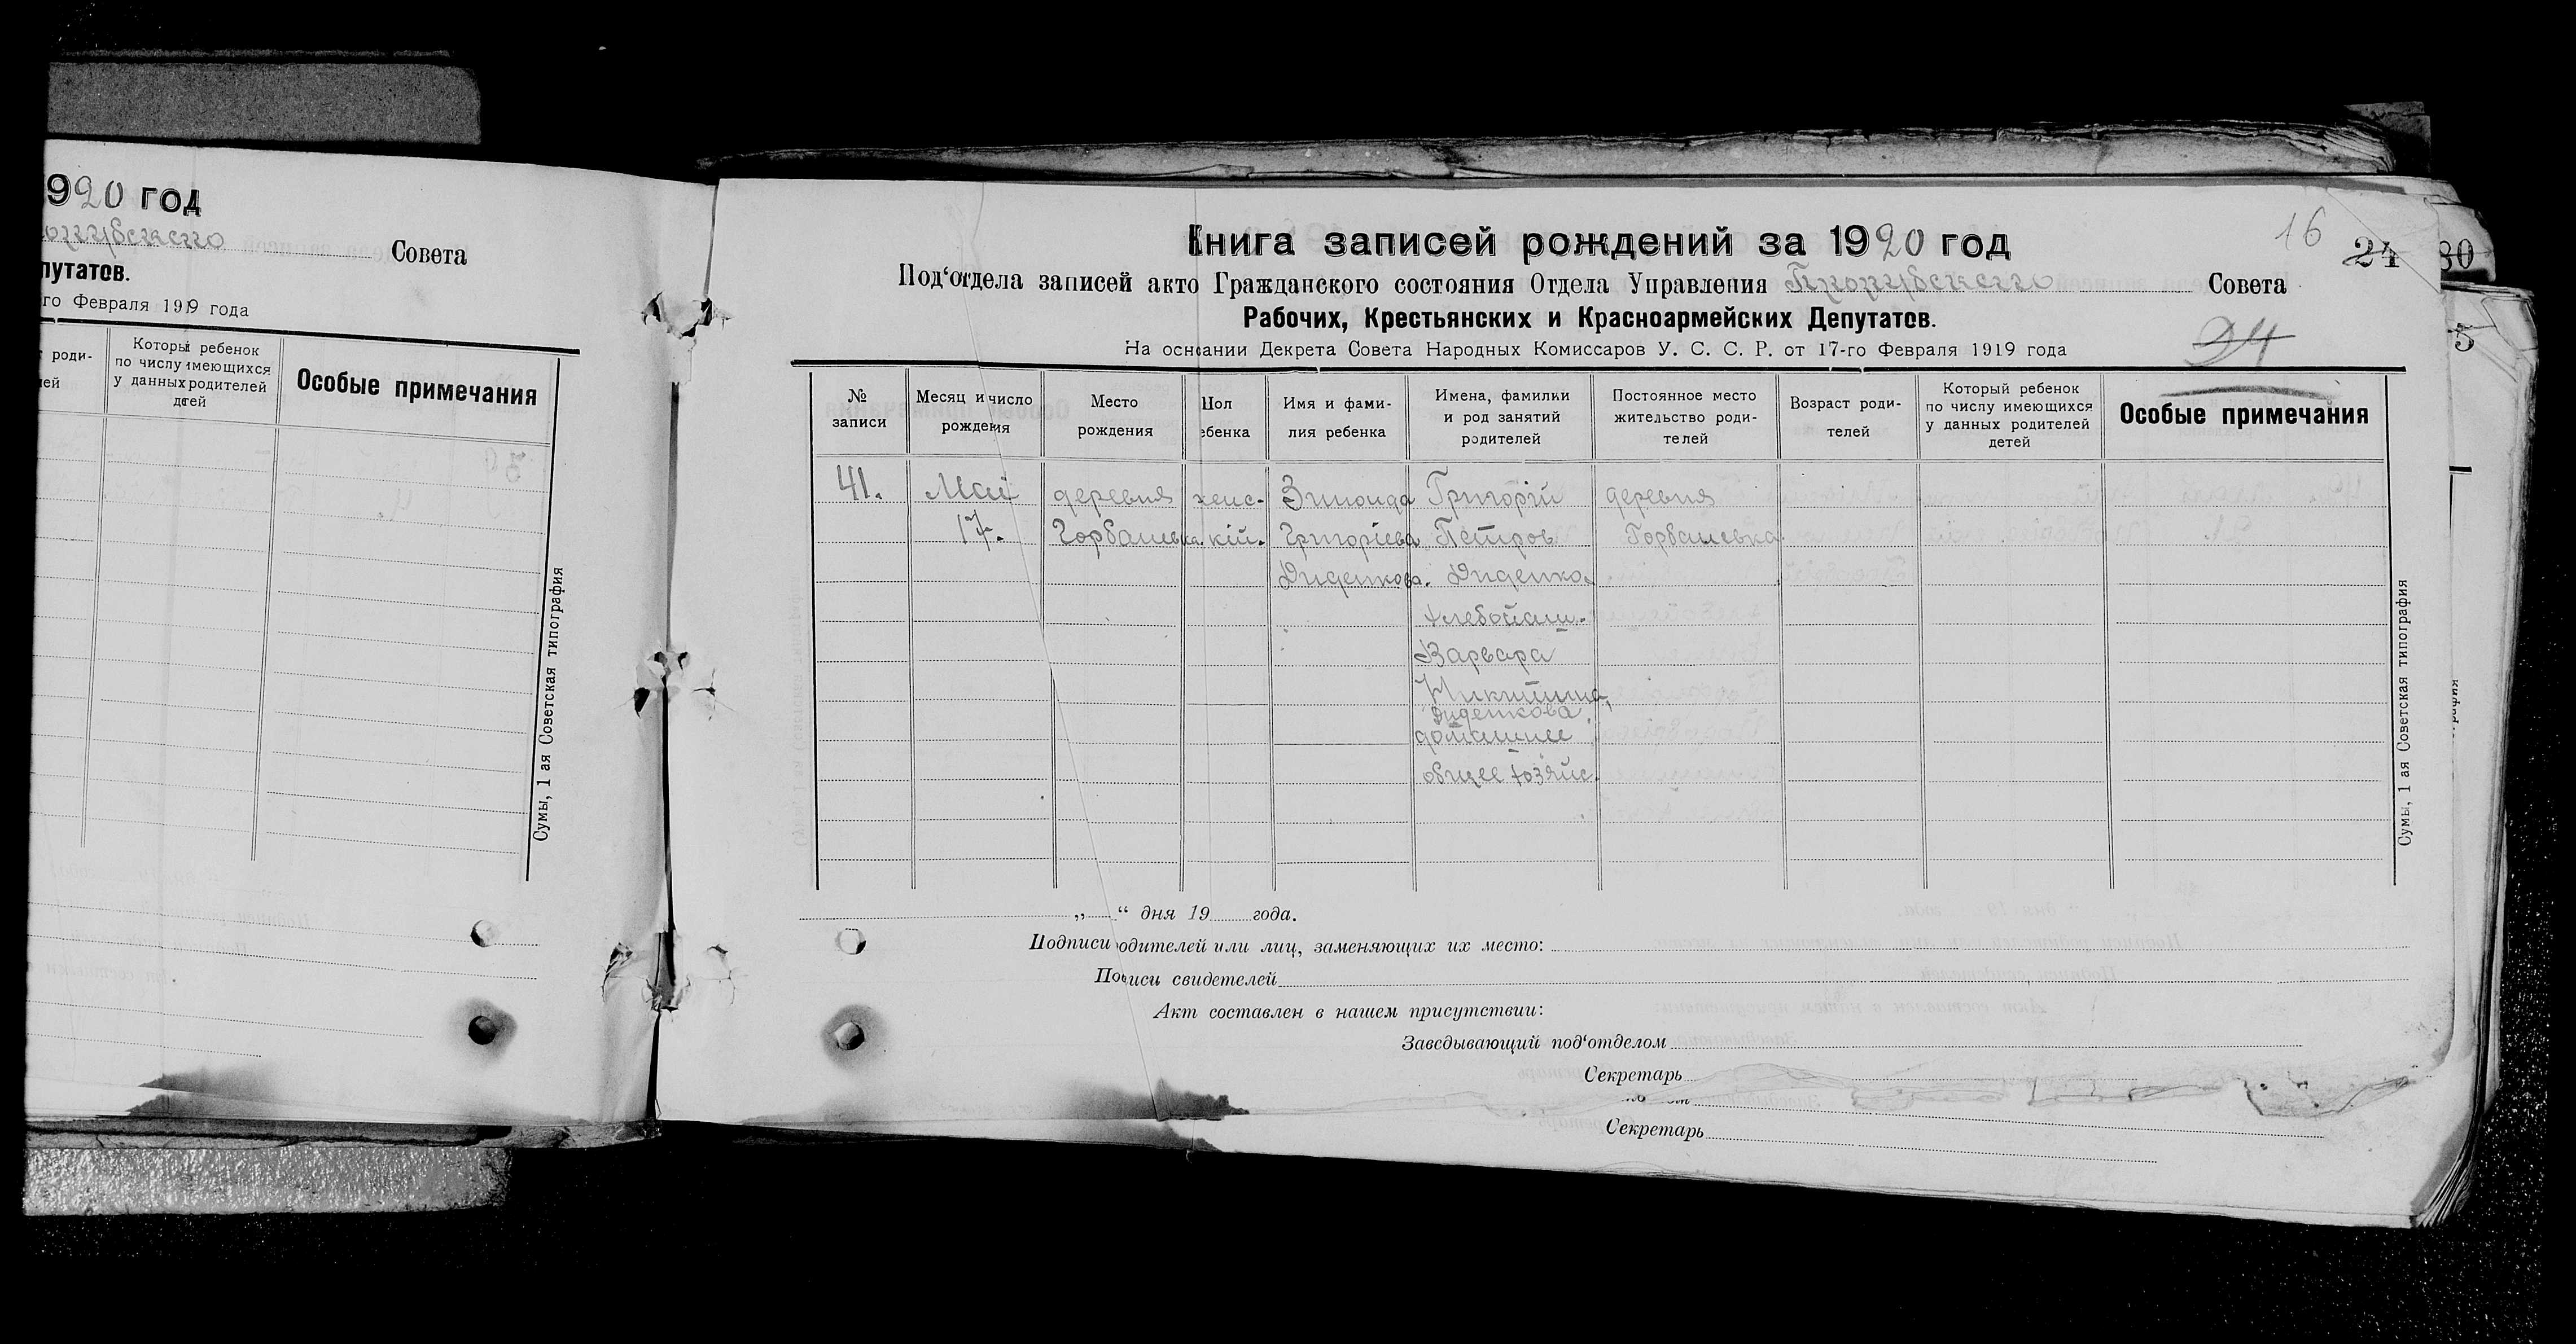 920 год
Совета
путатов.
го Февраля 1919 года
роди-
ей
Которы ребенок
по числу имеющихся
у данных родителей
детей
Особые примечания
Сумы, 1 ая Советская типография
16
24
30
Книга записей рождений за 1920 год
Под‘отдела записей акто Гражданского состояния Отдела Управления Совета
Рабочих, Крестьянских и Красноармейских Депутатов.
24
5
На осн ании Декрета Совета Народных Комиссаров У. С. С. Р. от 17-го Февраля 1919 года
№
записи
Месяц и число
рождения
Место
рождения
Пол
ебенка
Имя и фами-
лия ребенка
Имена, фамилии
и род занятий
родителей
Постоянное место
жительство роди-
телей
Возраст роди-
телей
Который ребенок
по числу имеющихся
у данных родителей
детей
Особые примечания
41.
Маи
17.
деревня
Горбашевка
женс-
кій.
Зиноида
Григоріева
Диденкова.
Григорій
Петров
Диденко.
хлебопаш.
Варвара
Никитина,
Диденкова.
домашнее
общее хозяйс.
деревня
Горбашевка
Сумы, 1 ая Советская типография
„ “ дня 19 года.
Подписи одителей или лиц, заменяющих их место:
По иси свидетелей
Акт составлен в нашем присутствии:
Заведывающий под‘отделом
Секретарь
Секретарь